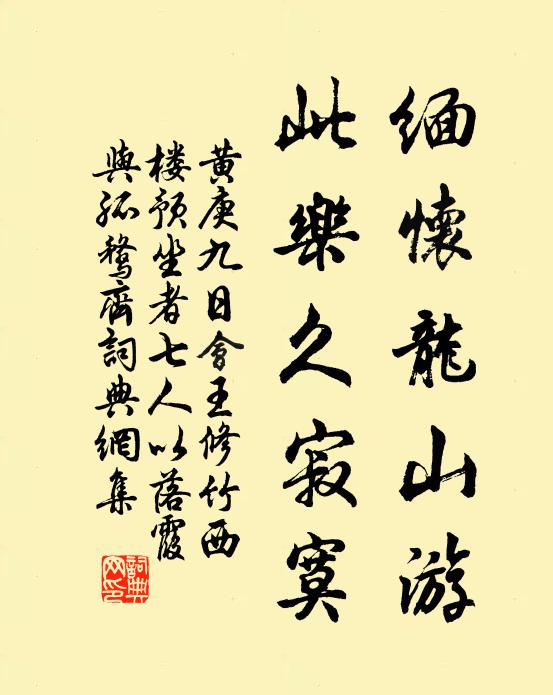 緬懷龍山游
此樂久寂寞
黄庚九日會王修竹西
楼预坐者七人以落霞
與孤鶩齊詞典網集
詞典
网印